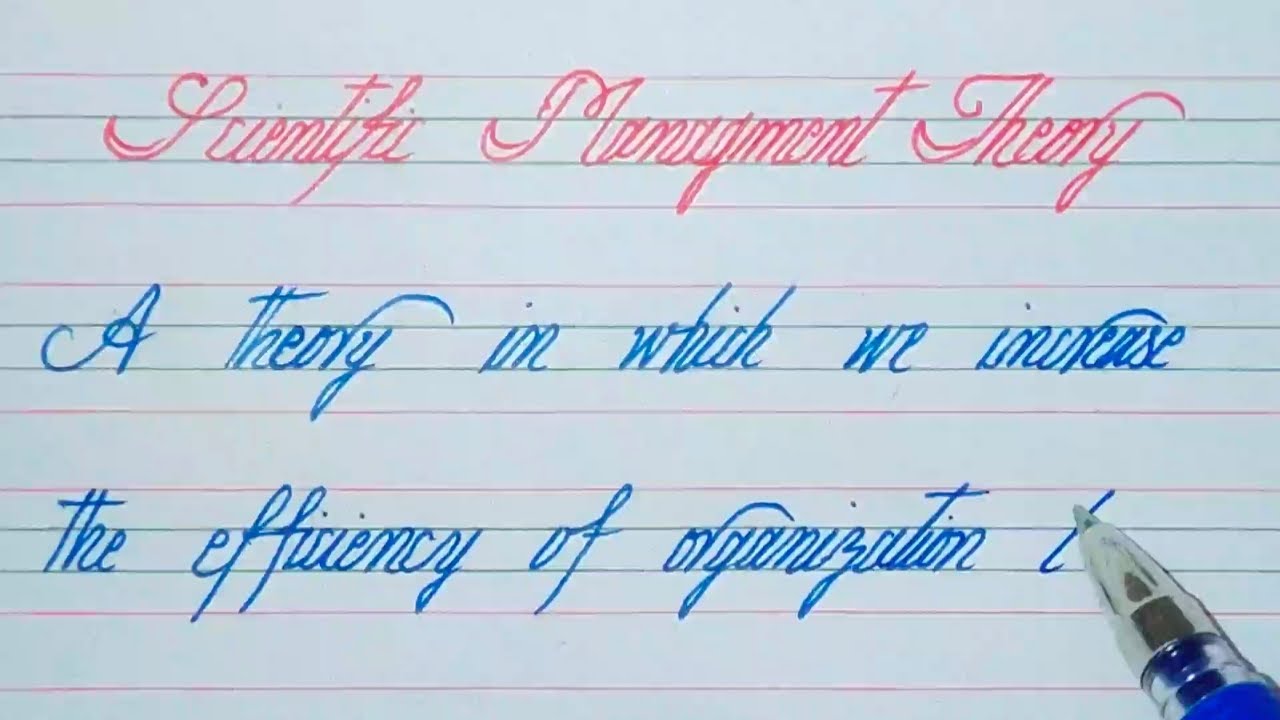 Scientific Managment Theory
A theory in which we increase
the efficiency of organization